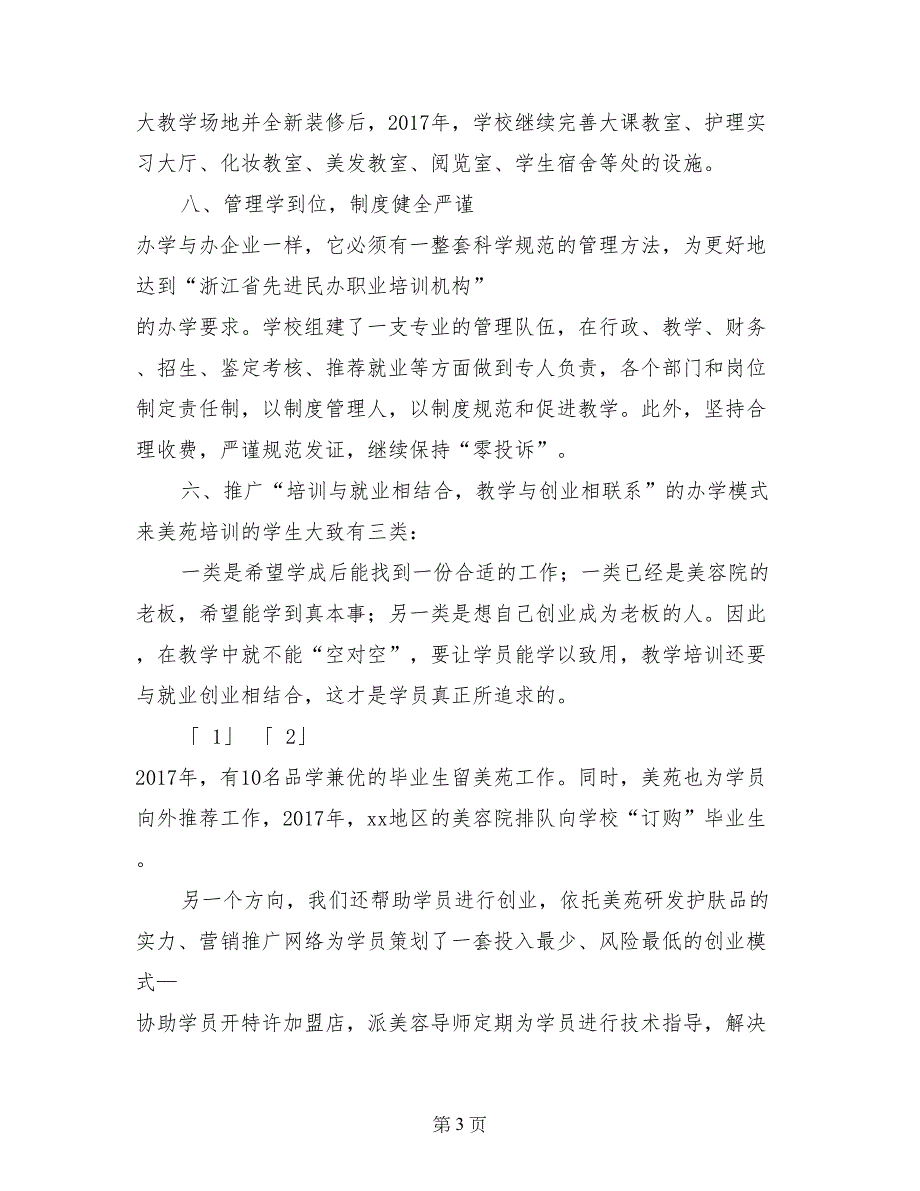 大教学场地并全新装修后，2017年，学校继续完善大课教室、护理实
习大厅、化妆教室、美发教室、阅览室、学生宿舍等处的设施。
八、管理学到位，制度健全严谨
办学与办企业一样，它必须有一整套科学规范的管理方法，为更好地
达到“浙江省先进民办职业培训机构”
的办学要求。学校组建了一支专业的管理队伍，在行政、教学、财务
、招生、鉴定考核、推荐就业等方面做到专人负责，各个部门和岗位
制定责任制，以制度管理人，以制度规范和促进教学。此外，坚持合
理收费，严谨规范发证，继续保持“零投诉”。
六、推广“培训与就业相结合，教学与创业相联系”的办学模式
来美苑培训的学生大致有三类：
一类是希望学成后能找到一份合适的工作；一类已经是美容院的
老板，希望能学到真本事；另一类是想自己创业成为老板的人。因此
，在教学中就不能“空对空”，要让学员能学以致用，教学培训还要
与就业创业相结合，这才是学员真正所追求的。
「 1」 「 2」
2017年，有10名品学兼优的毕业生留美苑工作。同时，美苑也为学员
向外推荐工作，2017年，xx地区的美容院排队向学校“订购”毕业生
。
另一个方向，我们还帮助学员进行创业，依托美苑研发护肤品的
实力、营销推广网络为学员策划了一套投入最少、风险最低的创业模
式—
协助学员开特许加盟店，派美容导师定期为学员进行技术指导，解决
第 3 页